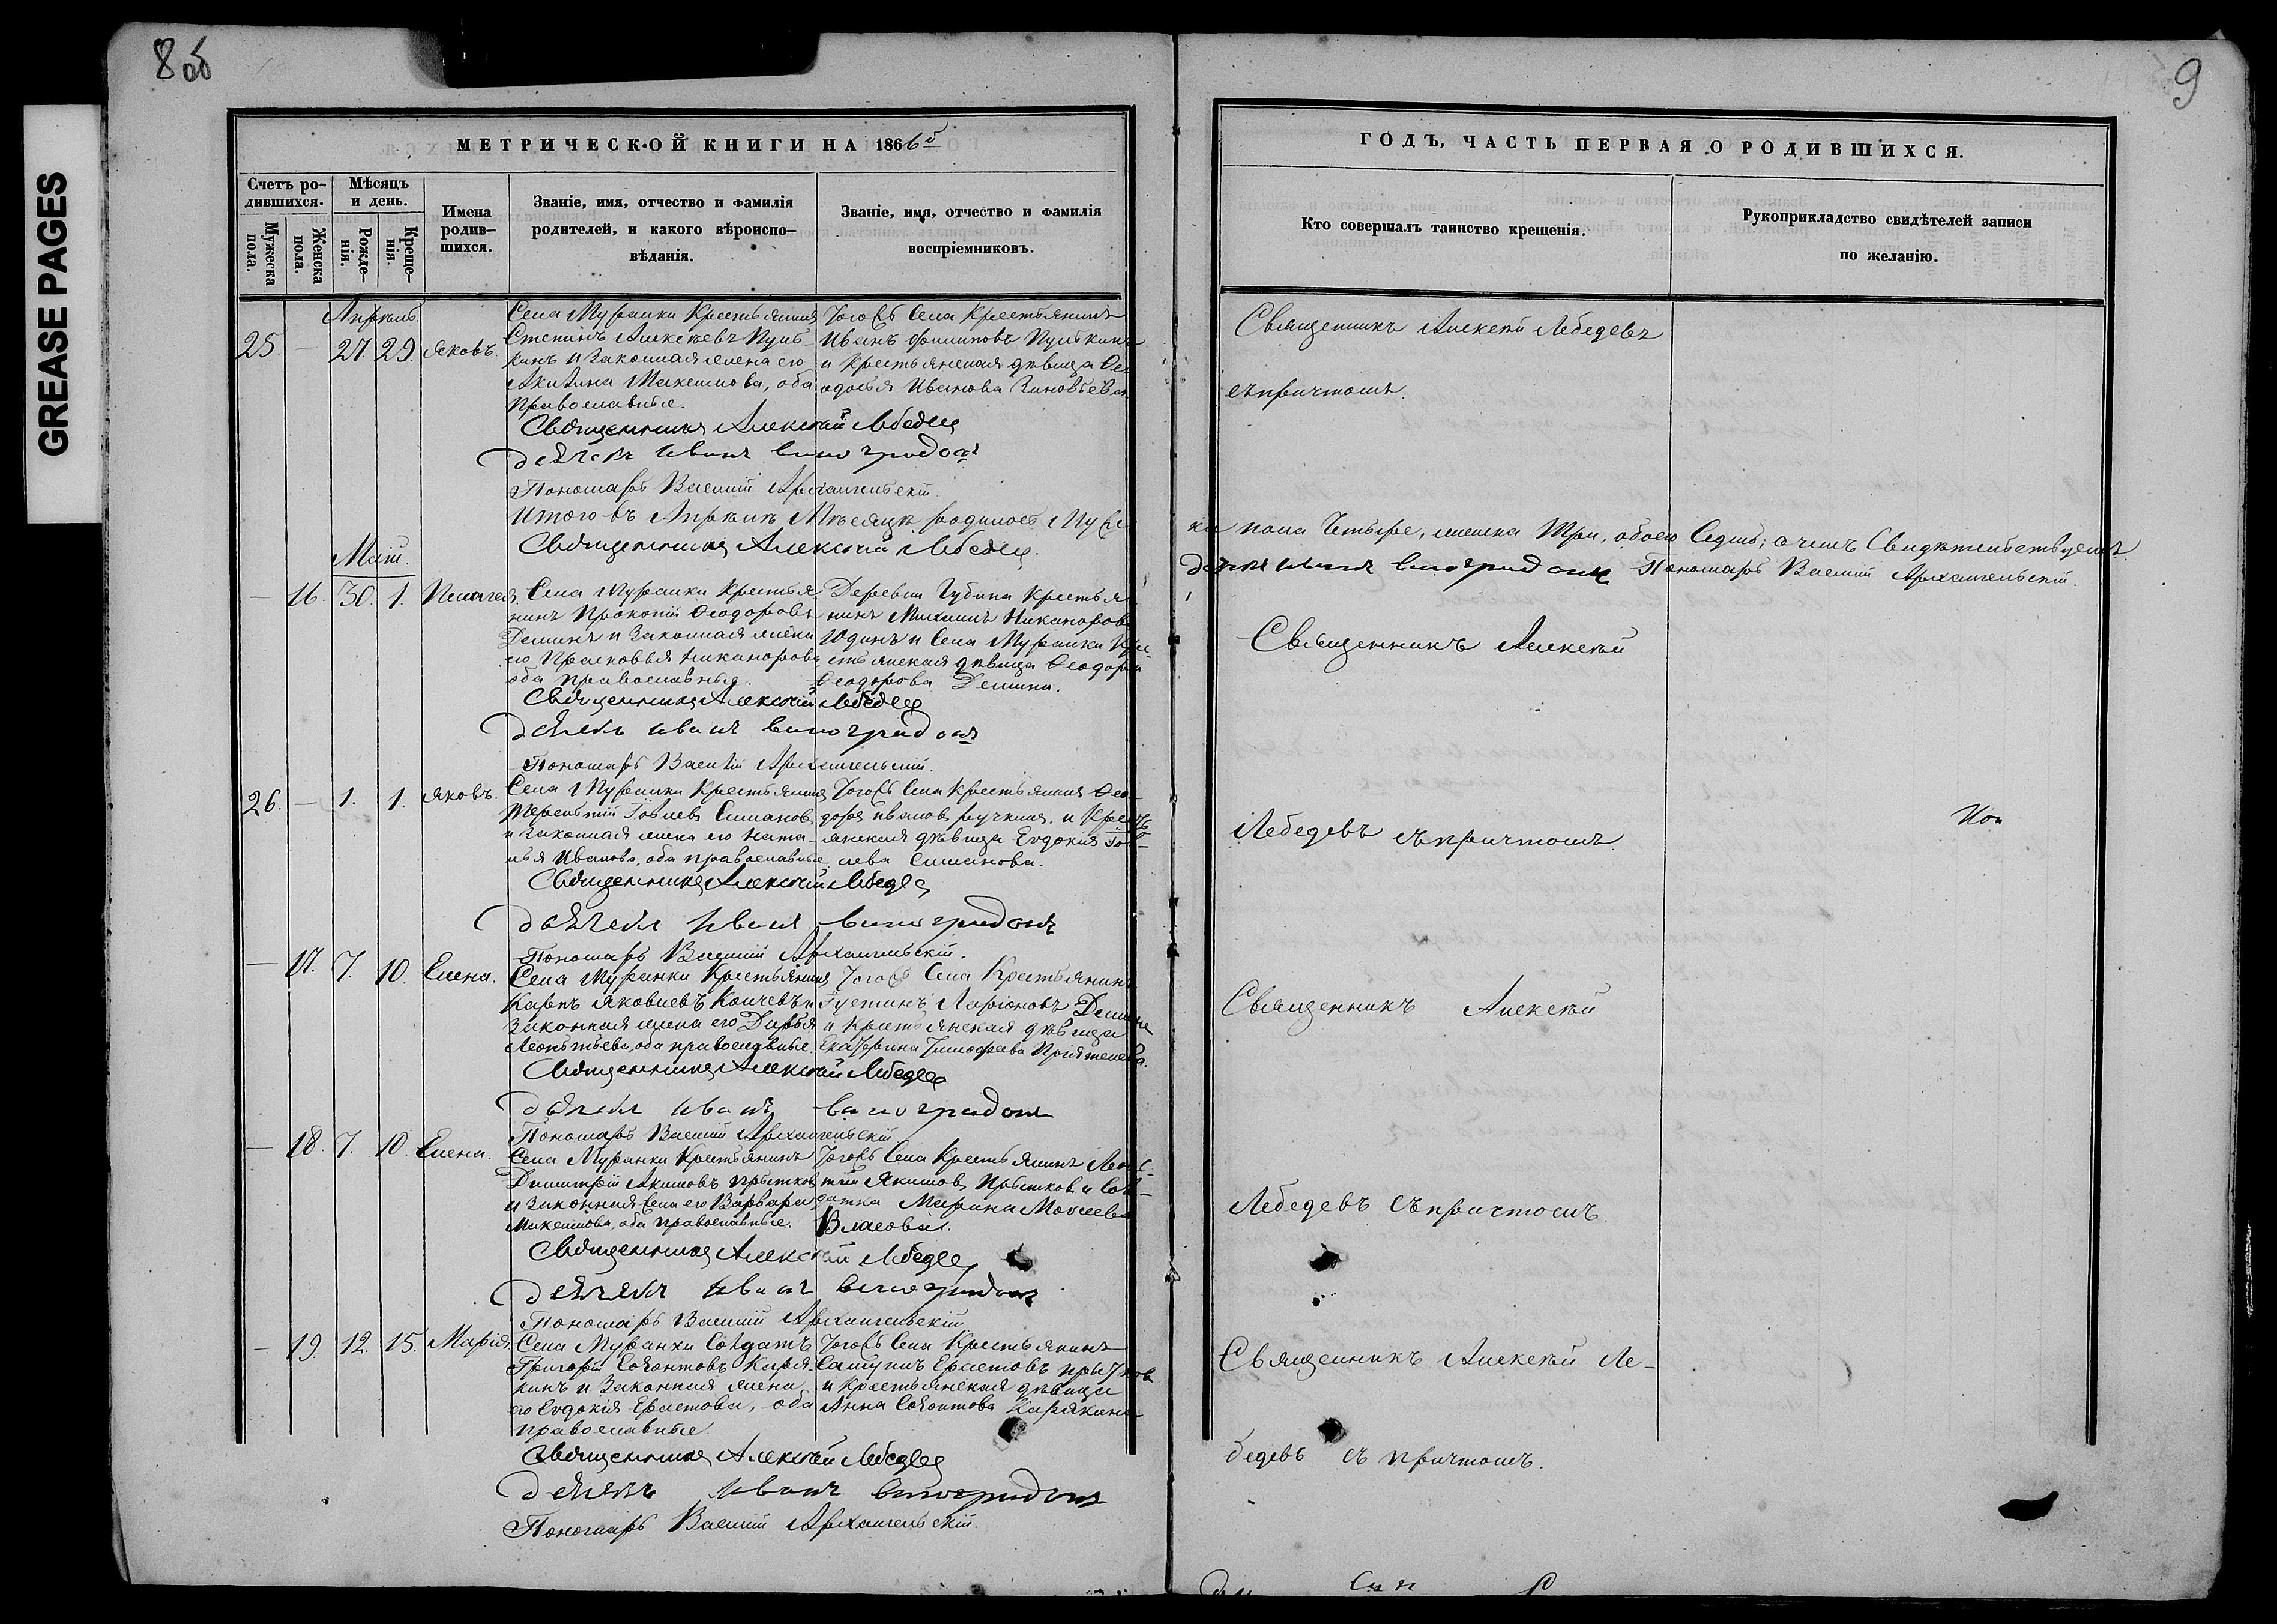 8 об
9
GREASE PAGES
МЕТРИЧЕСКОЙ КНИГИ НА 1866й
ГОДЪ, ЧАСТЬ ПЕРВАЯ О РОДИВШИХСЯ.
Счетъ ро-
дившихся.
Мужеска
пола.
Женска
пола.
Мѣсяцъ
и день.
Рожде-
нія.
Креще-
нія.
Имена
родив-
шихся.
Званіе, имя, отчество и фамилія
родителей, и какого вѣроиспо-
вѣданія.
Званіе, имя, отчество и фамилія
воспріемниковъ.
Кто совершалъ таинство крещенія.
Рукоприкладство свидѣтелей записи
по желанію.
Апрѣль.
25. — 27. 29. Яковъ.
Села Муранки Крестьянинъ
Степанъ Алексѣевъ Пуш-
кинъ и Законная жена его
Акилина Макѣимова, оба
Православные.
Тогожъ Села Крестьянинъ
Иванъ Филиповъ Пушкинъ
и Крестьянская дѣвица Ѳе-
одосья Иванова Зиновьева
Священникъ Алексѣй Лебедевъ
съпричтомъ.
Священникъ Алексѣй Лебедевъ
дьячекъ Иванъ Виноградовъ
Пономарь Василій Архангельскій
Итого въ Апрѣлѣ Мѣсяцѣ родилось Муже-
ка пола Четыре, женска Три, обоего Седмь; о чемъ Свидѣтельствуемъ
Священникъ Алексѣй Лебедевъ.
дьячекъ Иванъ Виноградовъ Пономарь Василій Архангельскій.
Маій.
— 16. 30. 1. Пелагея.
Села Муранки Крестья
нинъ Прокопій Ѳеодоровъ
Деминъ и Законная жена
его Прасковья Никанорова
оба православныя.
Деревни Губина Крестья
нинъ Михаилъ Никаноровъ
Юдинъ и Села Муранки Кре-
стьянская дѣвица Ѳеодора
Ѳеодорова Демина.
Священникъ Алексѣй
Священникъ Алексѣй Лебедевъ
дьячекъ Иванъ Виноградовъ
Пономарь Василій Архангельскій.
26. — 1. 1. Яковъ.
Села Муранки Крестьянинъ
Терентій Іовлевъ Симановъ
и законная жена его Ната-
лья Иванова, оба православные
Тогожъ Села Крестьянинъ Ѳео-
доръ Ивановъ Ручкинъ. и Кресть
янская дѣвица Евдокія Іо-
влева Симанова.
Лебедевъ съпричтомъ
Священникъ Алексѣй Лебедевъ
дьячекъ Иванъ Виноградовъ
Пономарь Василій Архангельскій.
— 17. 7. 10. Елена.
Села Муранки Крестьянинъ
Карпъ Яковлевъ Копчевъ и
Законная жена его Дарья
Леонтьева, оба православные.
Тогожъ Села Крестьянинъ
Густинъ Ларіоновъ Деминъ
и Крестьянская дѣвица
Екатерина Тимофеева Пріятелева.
Священникъ Алексѣй
Священникъ Алексѣй Лебедевъ
дьячекъ Иванъ Виноградовъ
Пономарь Василій Архангельскій
— 18. 7. 10. Елена.
Села Муранки Крестьянинъ
Димитрій Акимовъ Прытковъ
и Законная жена его Варвара
Макѣимова, оба православные.
Тогожъ Села Крестьянинъ Леон-
тій Якимовъ Прытковъ и Сол-
датка Марина Моисеева
Власова.
Лебедевъ Съпричтомъ.
Священникъ Алексѣй Лебедевъ
дьячекъ Иванъ Виноградовъ
Пономарь Василій Архангельскій
— 19. 12. 15. Марія.
Села Муранки Солдатъ
Григорій Созонтовъ Каря-
кинъ и Законная жена
его Евдокія Ерастова, оба
православные
Тогожъ Села Крестьянинъ
Сампсонъ Ерастовъ Прытковъ
и Крестьянская дѣвица
Анна Созонтова Карякина
Священникъ Алексѣй Ле-
бедевъ съ причтомъ.
Священникъ Алексѣй Лебедевъ
дьячекъ Иванъ Виноградовъ
Пономарь Василій Архангельскій.